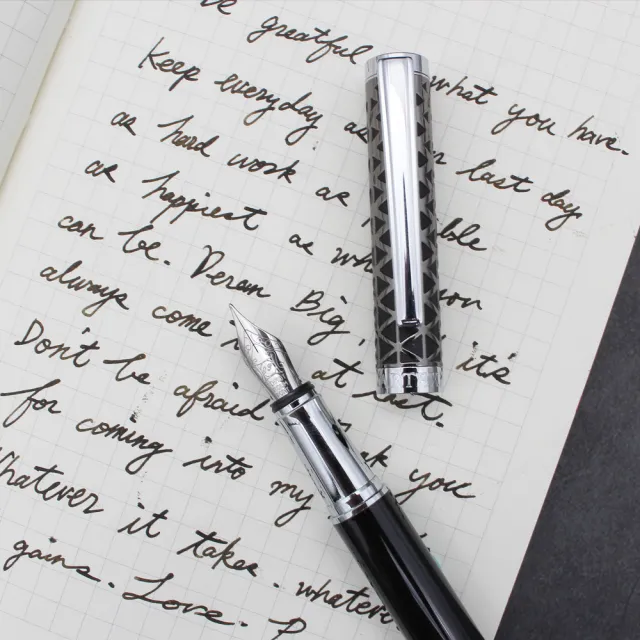 be greatful what you have.
Keep everyday as last day,
as hard work as able
as happiest as you
can be. Dream Big, it's
always come at last.
Don't be afraid ask you
for coming into my
whatever it takes. whatever
gains. Love.